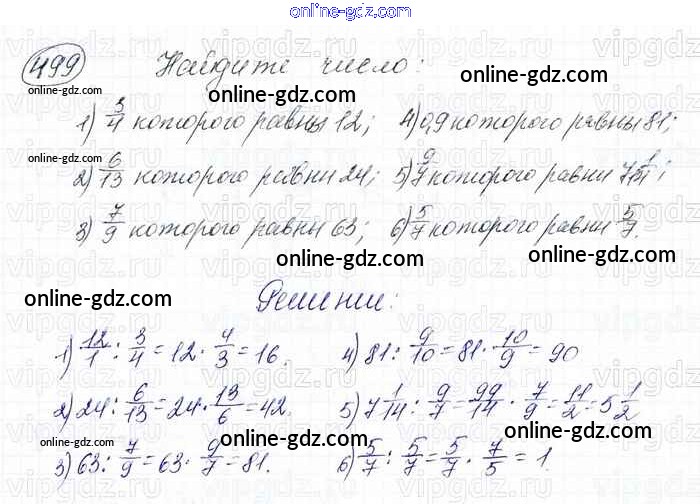 online-gdz.com
499 Найдите число:
online-gdz.com online-gdz.com online-gdz.com
1) 3/4 которого равны 12; 4) 0,9 которого равны 81;
online-gdz.com online-gdz.com online-gdz.com
2) 6/13 которого равны 24; 5) 9/7 которого равны 7 1/14;
3) 7/9 которого равны 63; 6) 5/7 которого равны 5/7.
online-gdz.com online-gdz.com
online-gdz.com online-gdz.com
Решение:
1) 12/1 : 3/4 = 12 · 4/3 = 16. 4) 81 : 9/10 = 81 · 10/9 = 90
online-gdz.com online-gdz.com online-gdz.com
2) 24 : 6/13 = 24 · 13/6 = 42. 5) 7 1/14 : 9/7 = 99/14 · 7/9 = 11/2 = 5 1/2
online-gdz.com online-gdz.com online-gdz.com
3) 63 : 7/9 = 63 · 9/7 = 81. 6) 5/7 : 5/7 = 5/7 · 7/5 = 1.
online-gdz.com